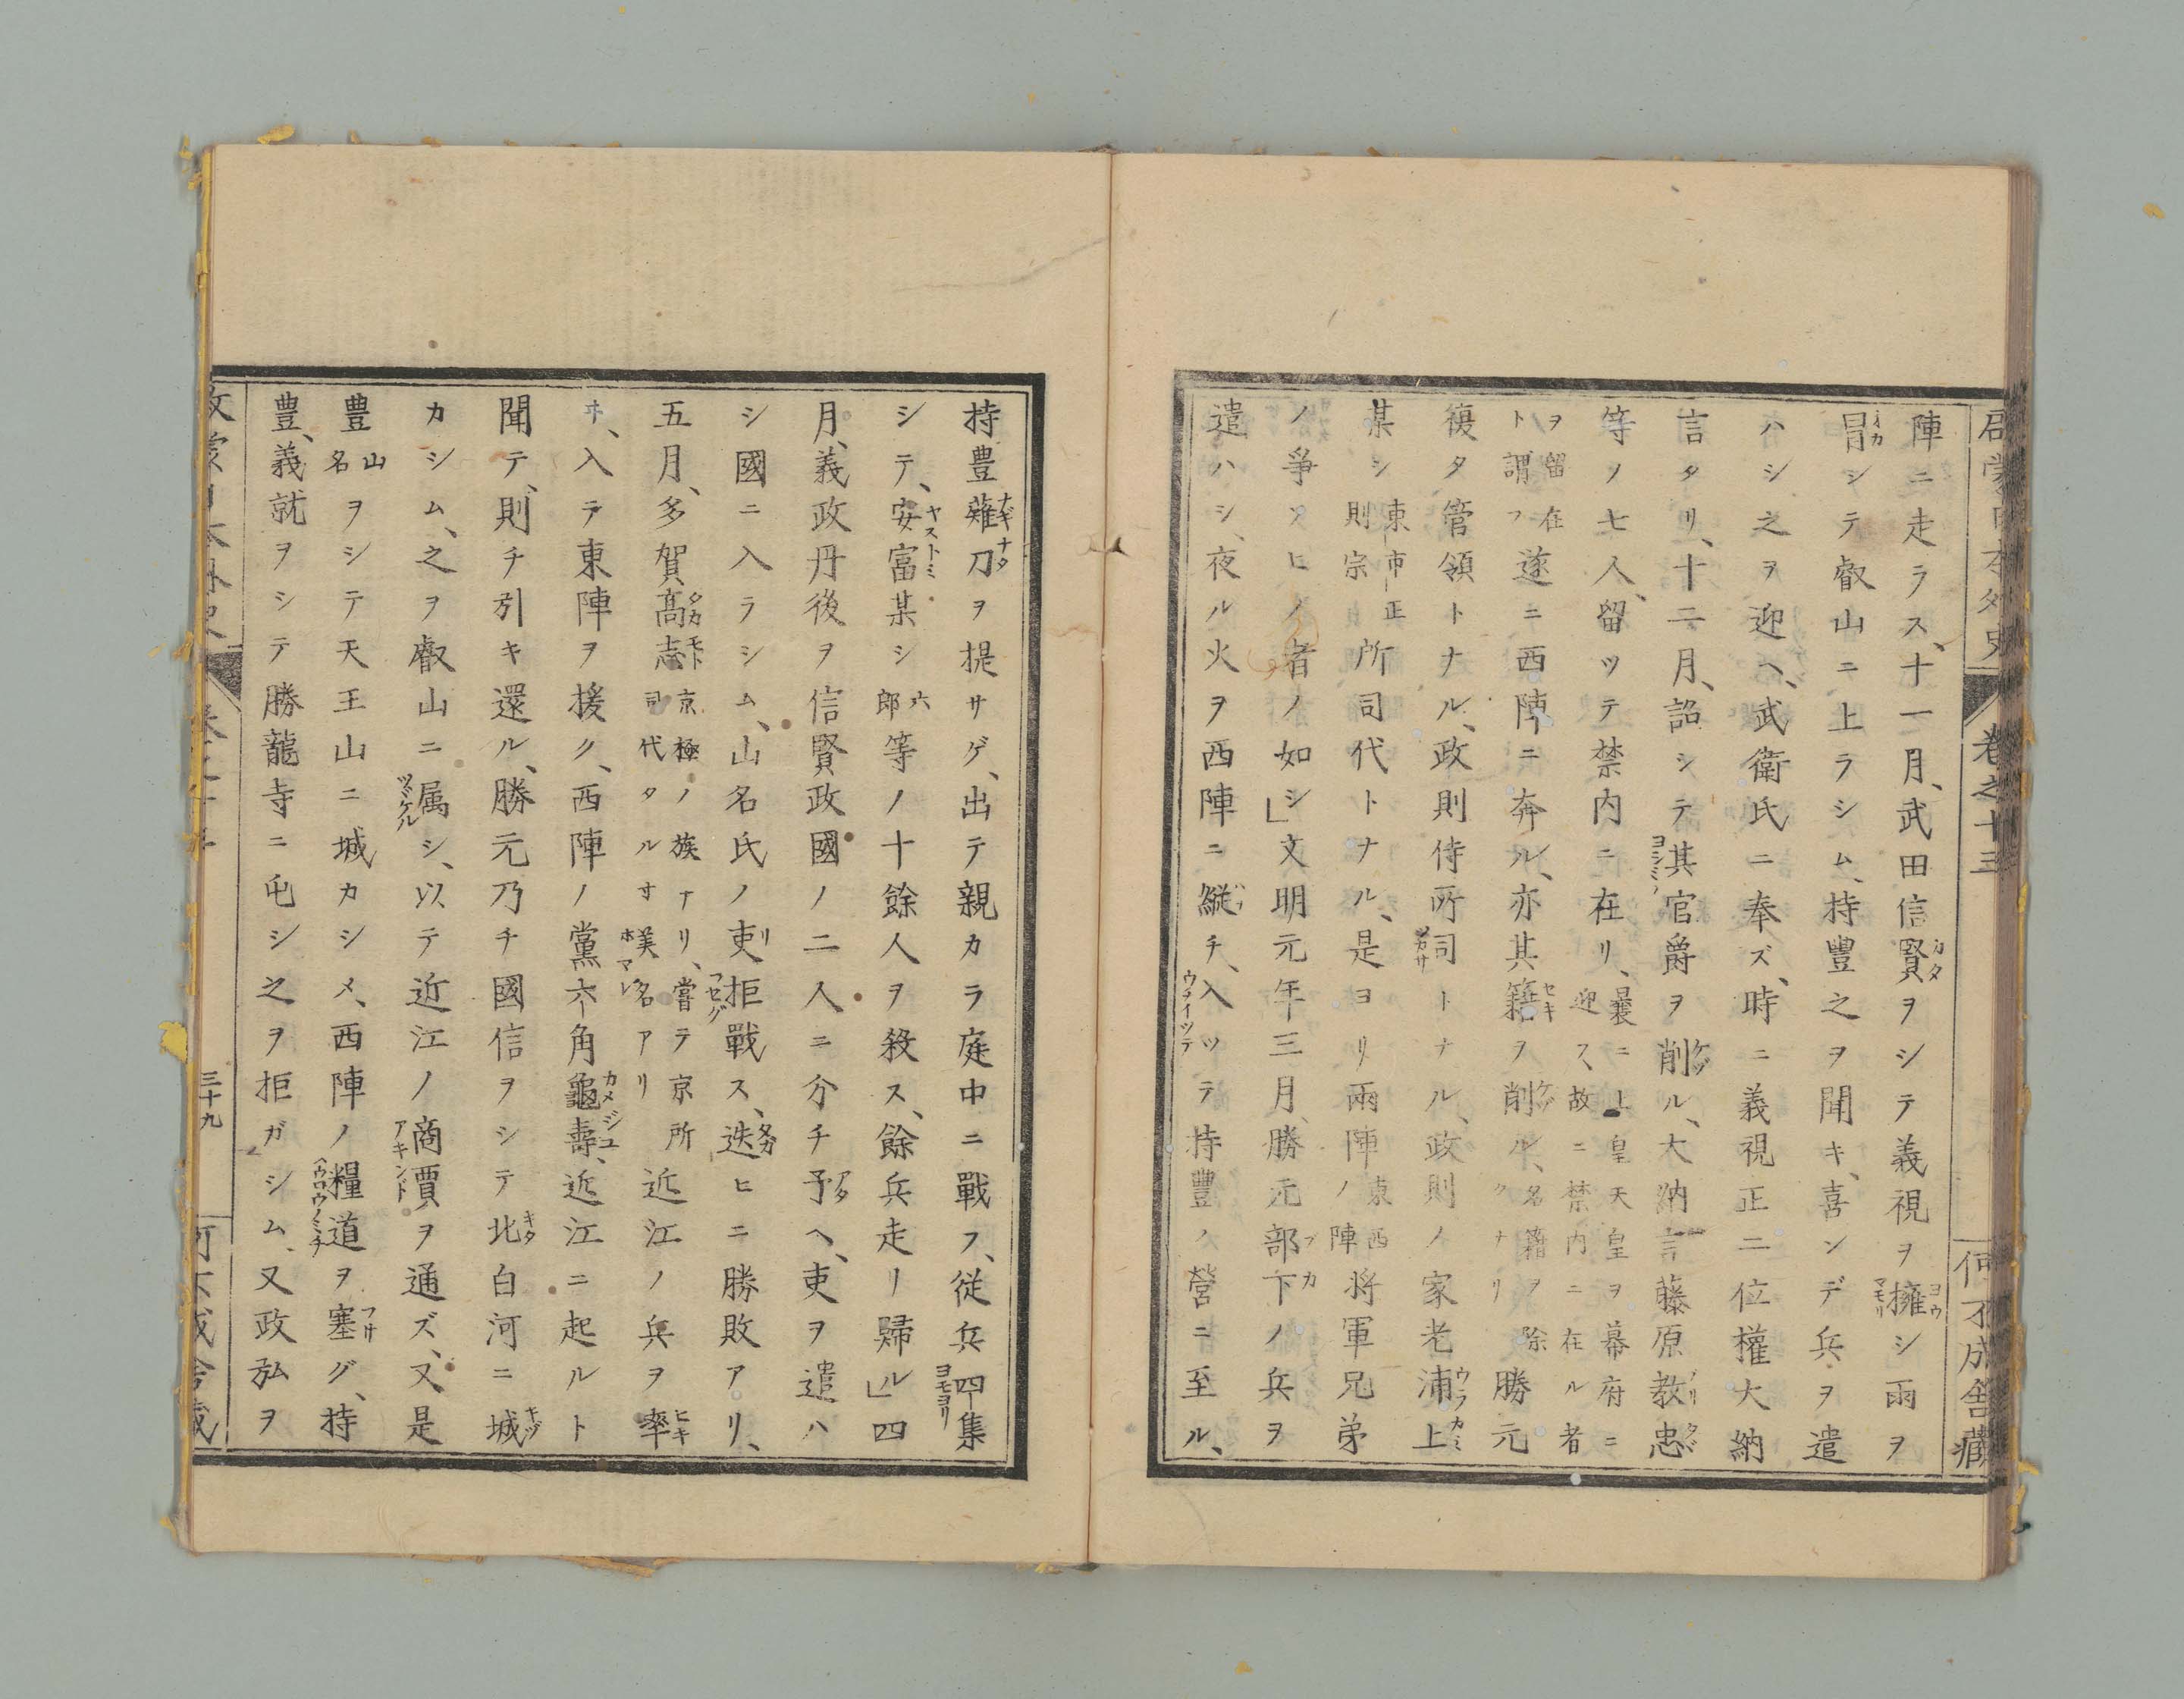 啓蒙日本外史 巻之十三 何不成舎藏
陣ニ走ラス、十一月、武田信賢ヲシテ義視ヲ擁シ雨ヲ
冒シテ叡山ニ上ラシム、持豊之ヲ聞キ、喜ンデ兵ヲ遣
ハシ之ヲ迎ヘ、武衛氏ニ奉ズ、時ニ義視正二位權大納
言タリ、十二月、詔シテ其官爵ヲ削ル、大納言藤原教忠
等ノ七人、留ツテ禁内ニ在リ、曩ニ上皇天皇ヲ幕府ニ迎フ、故ニ禁内ニ在ル者
ヲ留在ト謂フ遂ニ西陣ニ奔ル、亦其籍ヲ削ル、名籍ヲ除クナリ勝元
復タ管領トナル、政則侍所司トナル、政則ノ家老浦上
某シ東市正則宗所司代トナル、是ヨリ兩陣ノ東西陣將軍兄弟
ノ爭ソヒノ者ノ如シ」文明元年三月、勝元部下ノ兵ヲ
遣ハシ、夜ル火ヲ西陣ニ縦チ、入ツテ持豊ノ營ニ至ル、
持豊薙刀ヲ提サゲ、出テ親カラ庭中ニ戰フ、従兵四集
シテ、安富某シ六郎等ノ十餘人ヲ殺ス、餘兵走リ歸ル」四
月、義政丹後ヲ信賢政國ノ二人ニ分チ予ヘ、吏ヲ遣ハ
シ國ニ入ラシム、山名氏ノ吏拒戰ス、迭ヒニ勝敗アリ、
五月、多賀高志京極ノ族ナリ、嘗テ京所司代タルオ美名アリ近江ノ兵ヲ率
ヰ、入テ東陣ヲ援ク、西陣ノ黨六角龜壽、近江ニ起ルト
聞テ、則チ引キ還ル、勝元乃チ國信ヲシテ北白河ニ城
カシム、之ヲ叡山ニ属シ、以テ近江ノ商賈ヲ通ズ、又是
豊山名ヲシテ天王山ニ城カシメ、西陣ノ糧道ヲ塞グ、持
豊、義就ヲシテ勝龍寺ニ屯シ之ヲ拒ガシム、又政弘ヲ
三十九